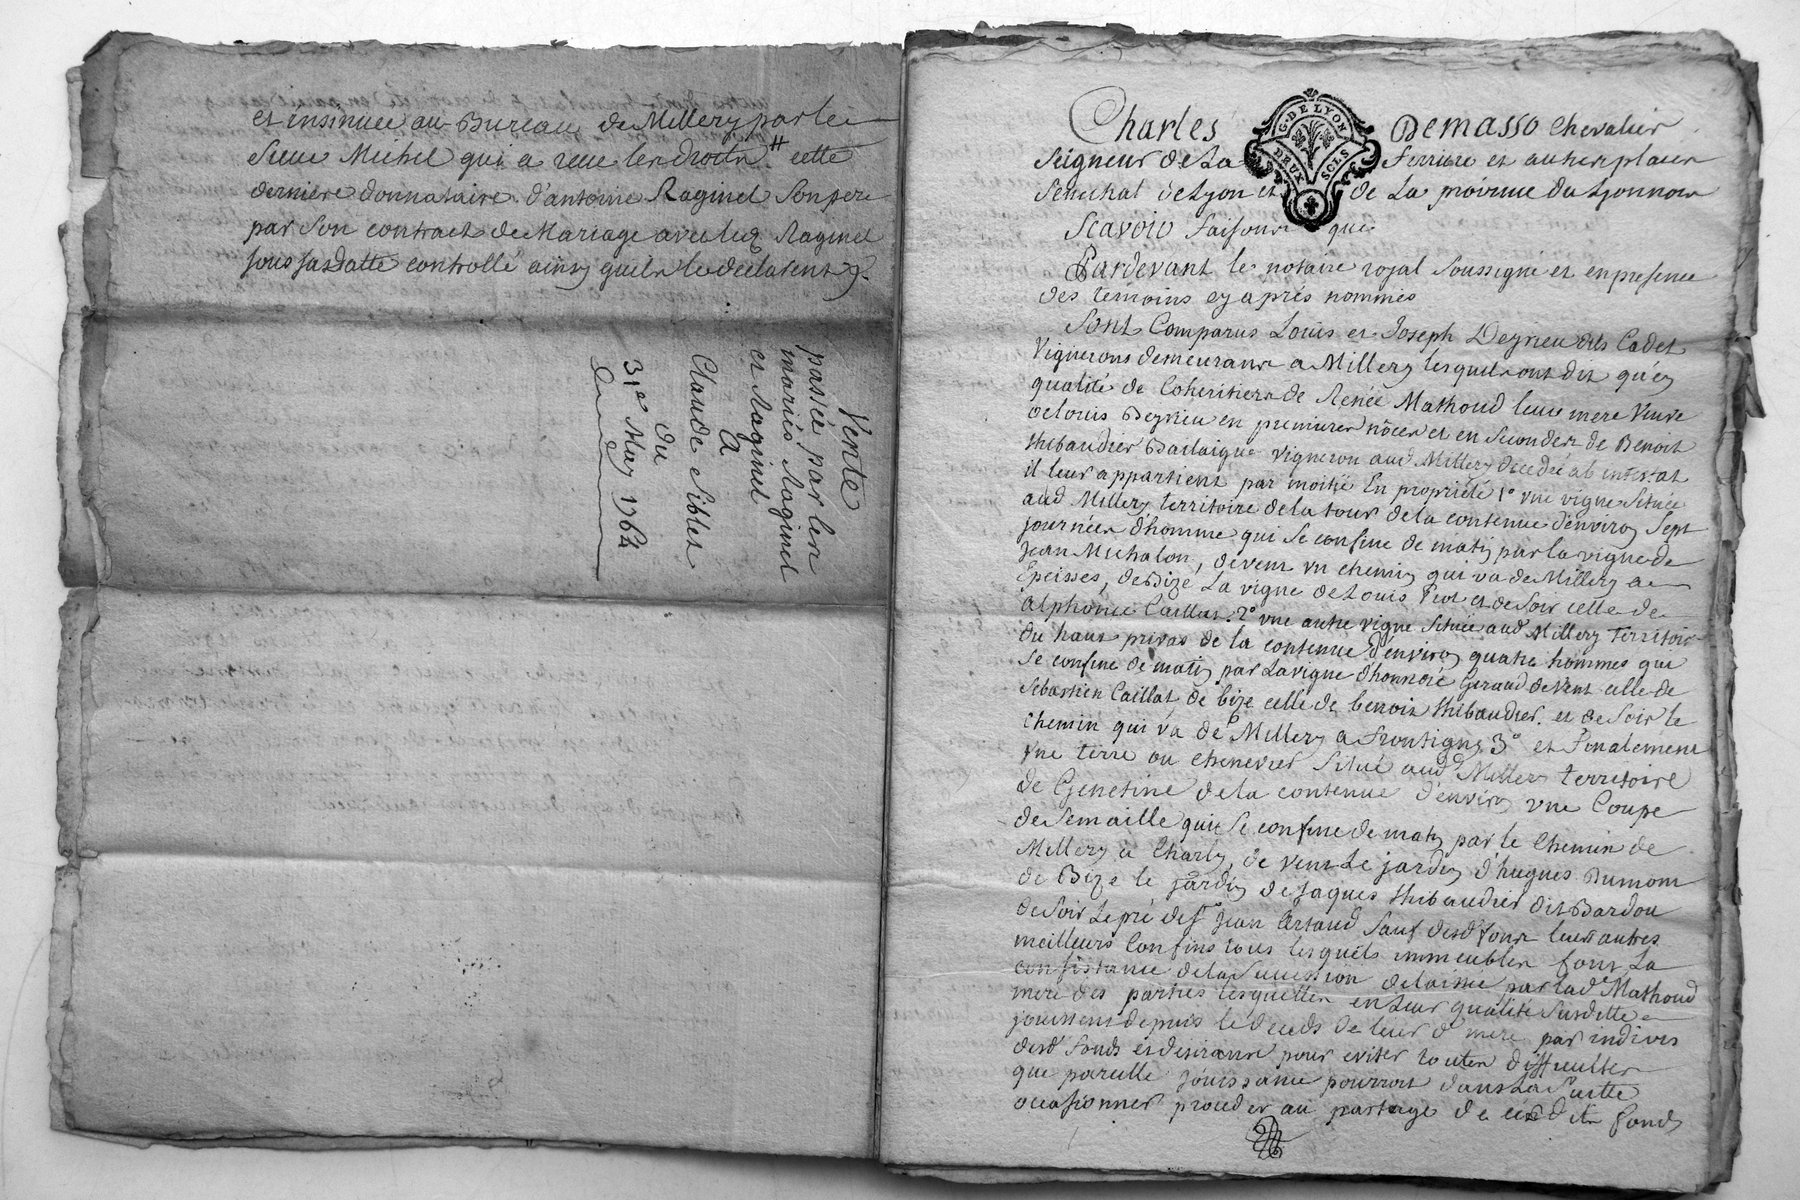 et insinuee au Bureau de Millery par le
Sieur Michel qui a receu les droits # cette
derniere donnataire d'antoine Raginel Son pere
par Son contract de Mariage avec led Raginel
Sous Sa datte controllé ainsy quils le declarent
Vente
passée par les
mariés Raginel
et Raginel
A
Claude Siblet
du
31e May 1764
Charles Demasso Chevalier
G. DE LYON
DEUX SOLS
Seigneur de La Ferriere et autres places
Senechal de Lyon et de La province du Lyonnois
Scavoir faisons que
Pardevant le notaire royal Soussigné et en presence
des temoins cy après nommés
Sont Comparus Louis et Joseph Deyrieu dits Cadet
Vignerons demeurans a Millery lesquels ont dit qu'en
qualité de Coheritiers de Renée Mathoud leur mere Veuve
de Louis Deyrieu en premieres nôces et en Secondes de Benoit
thibaudier Barlaique vigneron aud Millery decedée ab intestat
il leur appartient par moitié En propriété 1° vne vigne Située
aud Millery territoire de la tour de la contenue d'environ Sept
journées d'homme qui Se confine de matin par la vigne de
Jean Michalon, de vent vn chemin qui va de Millery a
Epeisses, de Bize La vigne de Louis et de Soir celle de
alphonce Caillat. 2° vne autre vigne Située aud Millery territoire
du haut privas de la contenue d'environ quatre hommes qui
Se confine de matin par La vigne d'honnoré Giraud de Vent celle de
Sebastien Caillat, de bize celle de benoit thibaudier. et de Soir le
Chemin qui va de Millery a Frontigny 3° et Finalement
vne terre ou chenevier Situé aud Millery territoire
de Genetine de la contenue d'environ vne Coupe
de Semaille qui Se confine de matin par le Chemin de
Millery a Charly, de vent Le jardin d'hugues Dumont
de Bize le jardin de Jaques thibaudier dit Bardou
de Soir Le pré de Sr Jean Artaud Sauf desd fonds leurs autres
meilleurs Confins tous lesquels immeubles font La
consistance de la Succession delaissée par lad Mathoud
mere des parties lesquelles en Leur qualité Susditte
jouissent depuis le deceds de leur d mere par indivis
desd fonds et desirans pour eviter toutes difficultes
que pareille jouissance pourroit dans La Suitte
occasionner proceder au partage de cesdits fonds